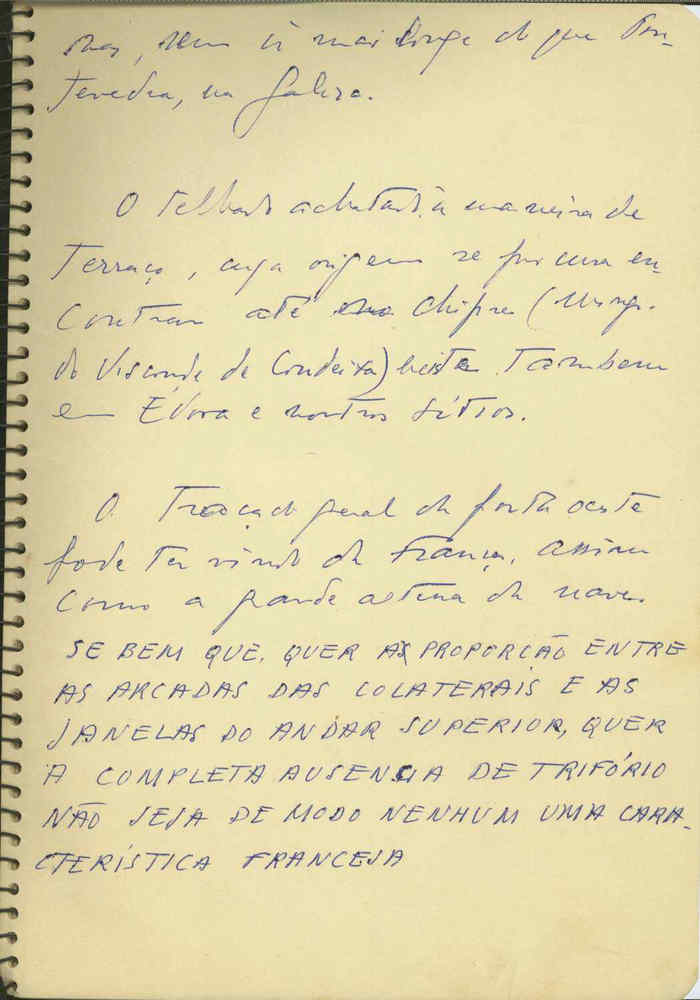 mas, sem ir mais longe do que Pon-
tevedra, na Galiza.
O telhado achatado à maneira de
Terraço, cuja origem se procura en-
contrar até Chipre (
do Visconde de Condeixa) existe Também
em Évora e noutros sítios.
O Traçado geral da porta oeste
pode ter vindo da França, assim
como a grande altura da nave.
SE BEM QUE, QUER A PROPORCÃO ENTRE
AS ARCADAS DAS COLATERAIS E AS
JANELAS DO ANDAR SUPERIOR, QUER
A COMPLETA AUSENCIA DE TRIFÓRIO
NÃO SEJA DE MODO NENHUM UMA CARA-
CTERÍSTICA FRANCESA